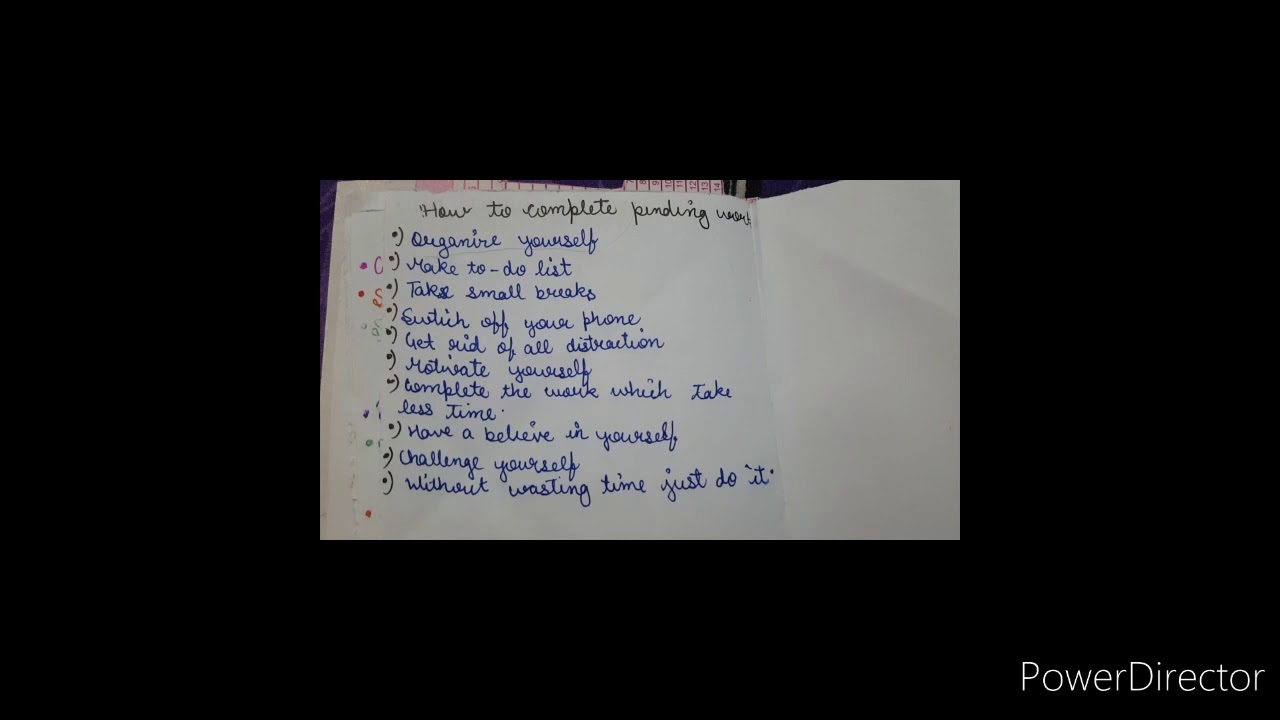 How to complete pending work
•) Organize yourself
•) Make to-do list
•) Take small breaks
•) Switch off your phone
•) Get rid of all distraction
•) Motivate yourself
•) Complete the work which take
less time.
•) Have a believe in yourself
•) Challenge yourself
•) Without wasting time just do it.
PowerDirector